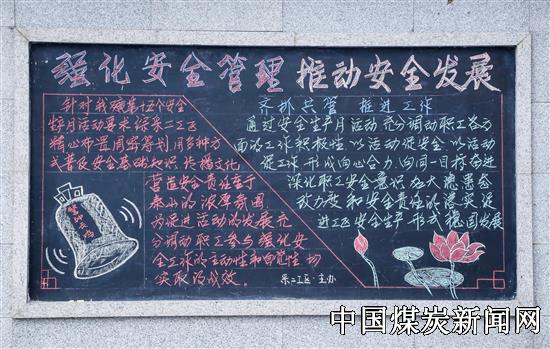 强化安全管理 推动安全发展
针对我矿第十五个安全
生产月活动要求 综采二工区
精心布置 周密筹划 用多种方
式普及安全基础知识 传播文化
营造安全责任重于
泰山的浓厚氛围
为促进活动的发展 充
分调动职工参与 强化安
全工作的主动性和自觉性 切
实取得成效。
齐抓共管 推进工作
通过安全生产月活动 充分调动职工各方
面的工作积极性 以活动促安全 以活动
促工作 形成向心合力 向同一目标奋进
深化职工安全意识 加大隐患态
度和安全责任的落实 促
进工区安全生产形式稳固发展
警钟长鸣
采二工区·主办
中国煤炭新闻网